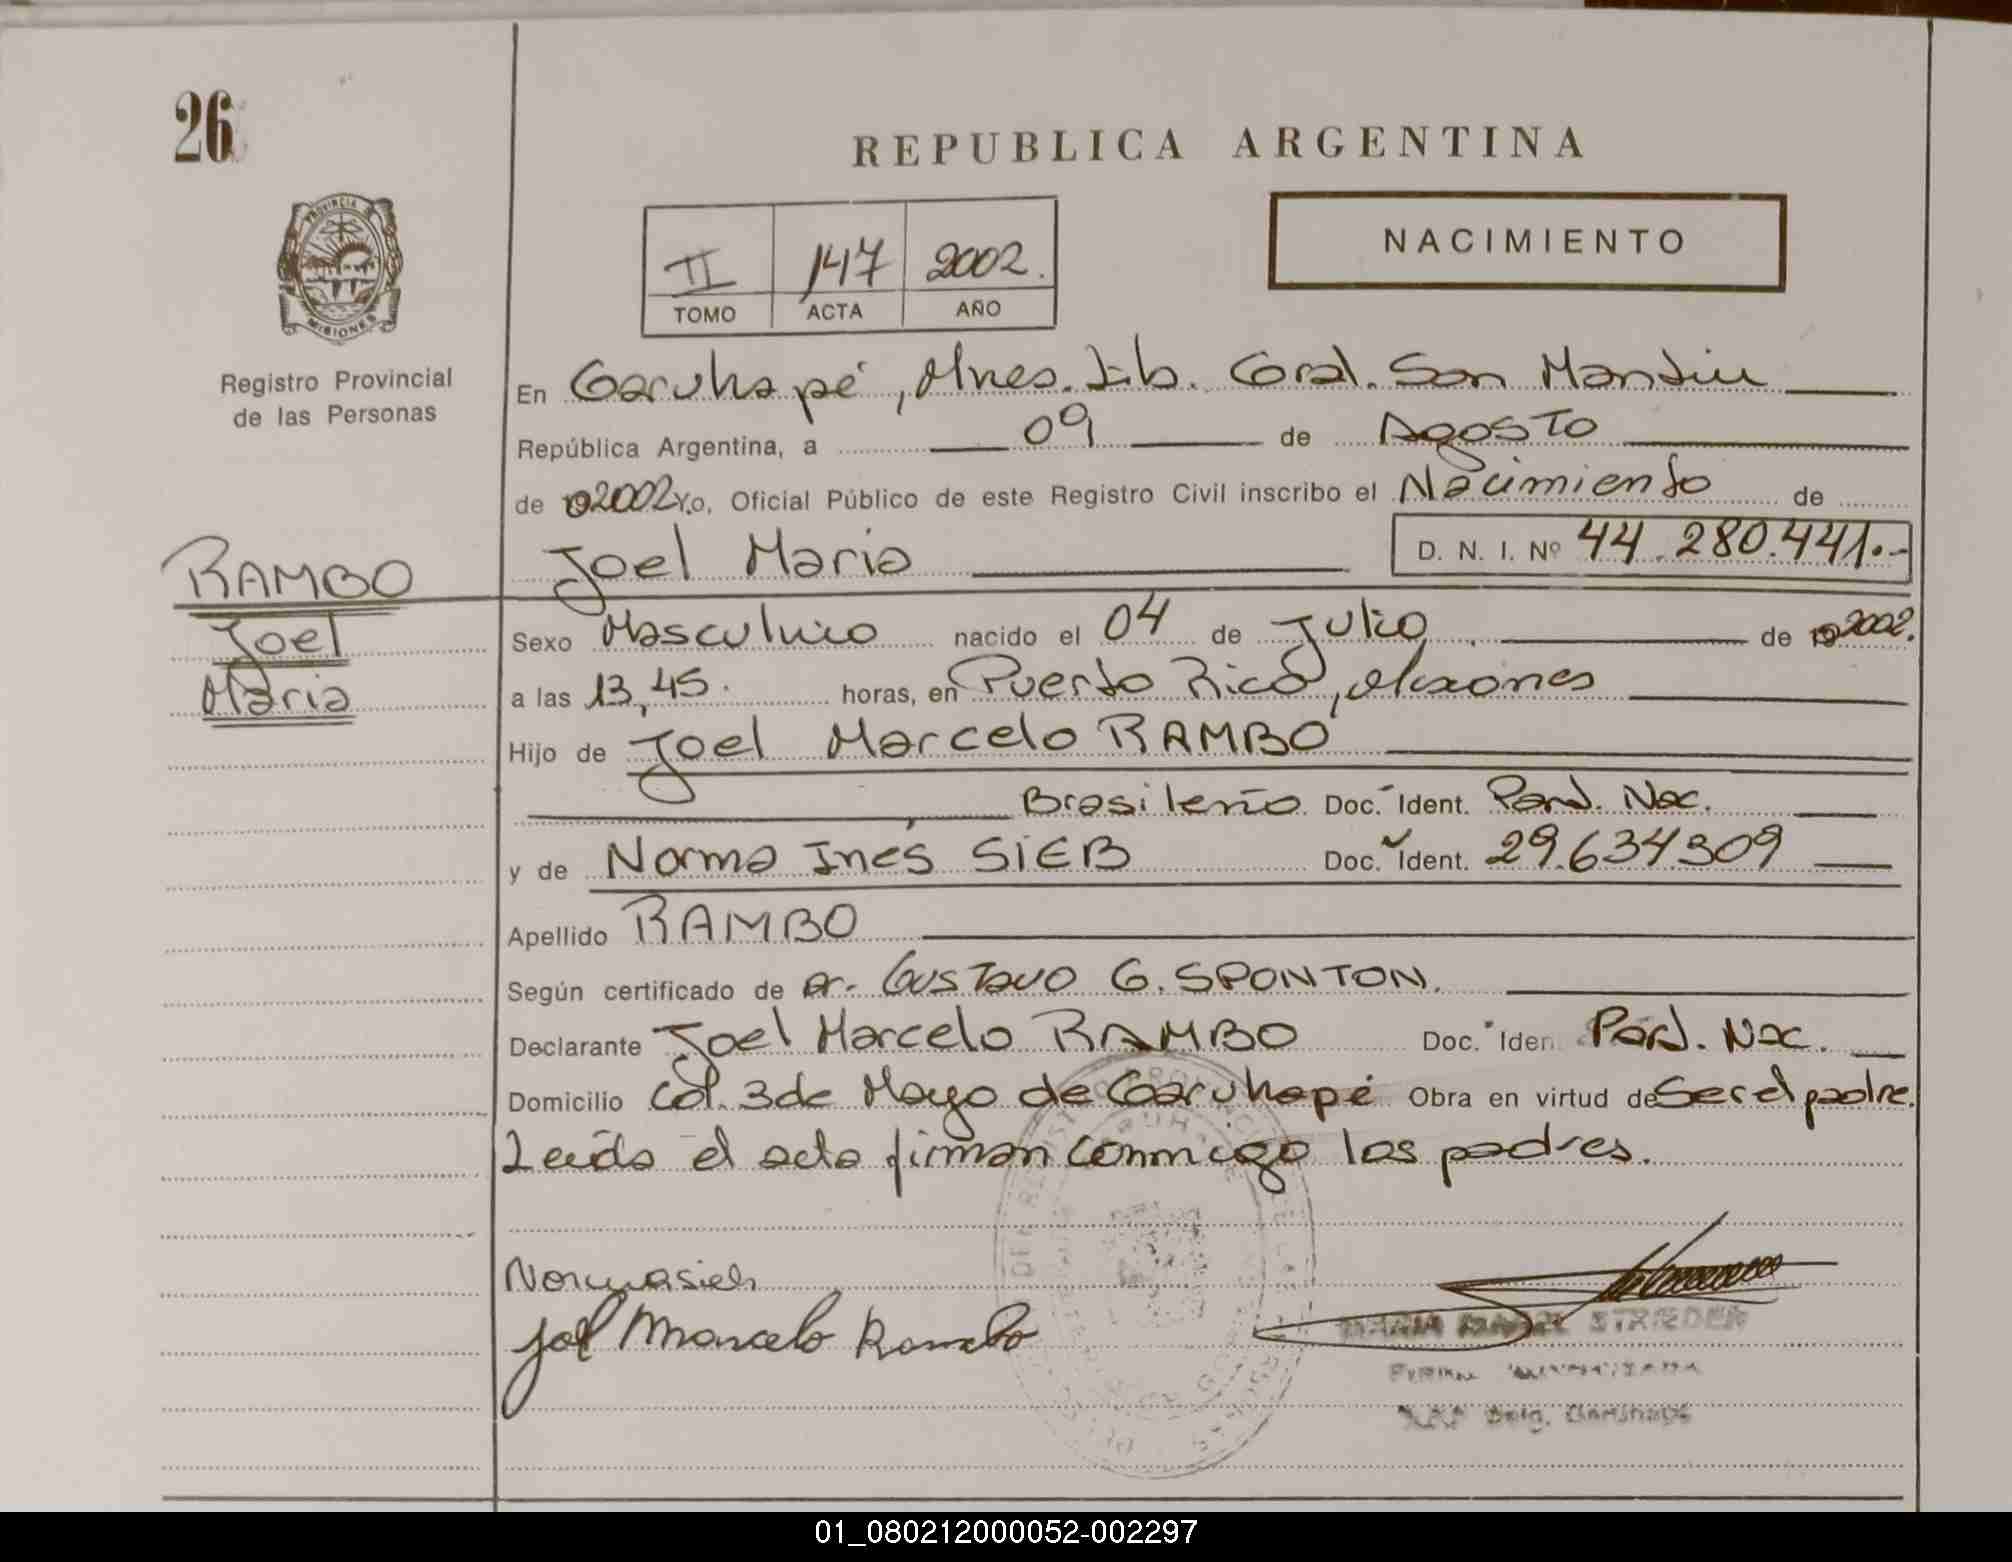 26
REPUBLICA ARGENTINA
PROVINCIA
MISIONES
II 147 2002.
TOMO ACTA AÑO
NACIMIENTO
Registro Provincial
de las Personas
En Garuhapé, Mnes. Lib. Gral. San Martin
República Argentina, a 09 de Agosto
de 2002 Yo, Oficial Público de este Registro Civil inscribo el Nacimiento de
Joel Maria D. N. I. Nº 44.280.441.-
RAMBO
Joel
Maria
Sexo Masculino nacido el 04 de Julio de 2002.
a las 13,45. horas, en Puerto Rico, Misiones
Hijo de Joel Marcelo RAMBO
Brasileño Doc. Ident. Nac.
y de Norma Inés SIEB Doc. Ident. 29.634309
Apellido RAMBO
Según certificado de Dr. Gustavo G. SPONTON.
Declarante Joel Marcelo RAMBO Doc. Iden Nac.
Domicilio Col. 3 de Mayo de Garuhapé Obra en virtud de Ser el padre.
Leída el acta firman conmigo los padres.
Norma Sieb
Joel Marcelo Rambo
MARIA STRIEDER
Delg. Garuhape
01_080212000052-002297